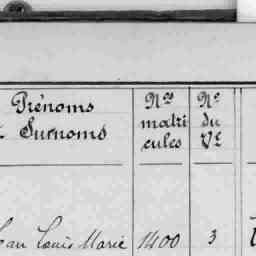 Prénoms
Surnoms
Nos
matri
cules
No
du
Vt
Louis Marie 1400 3